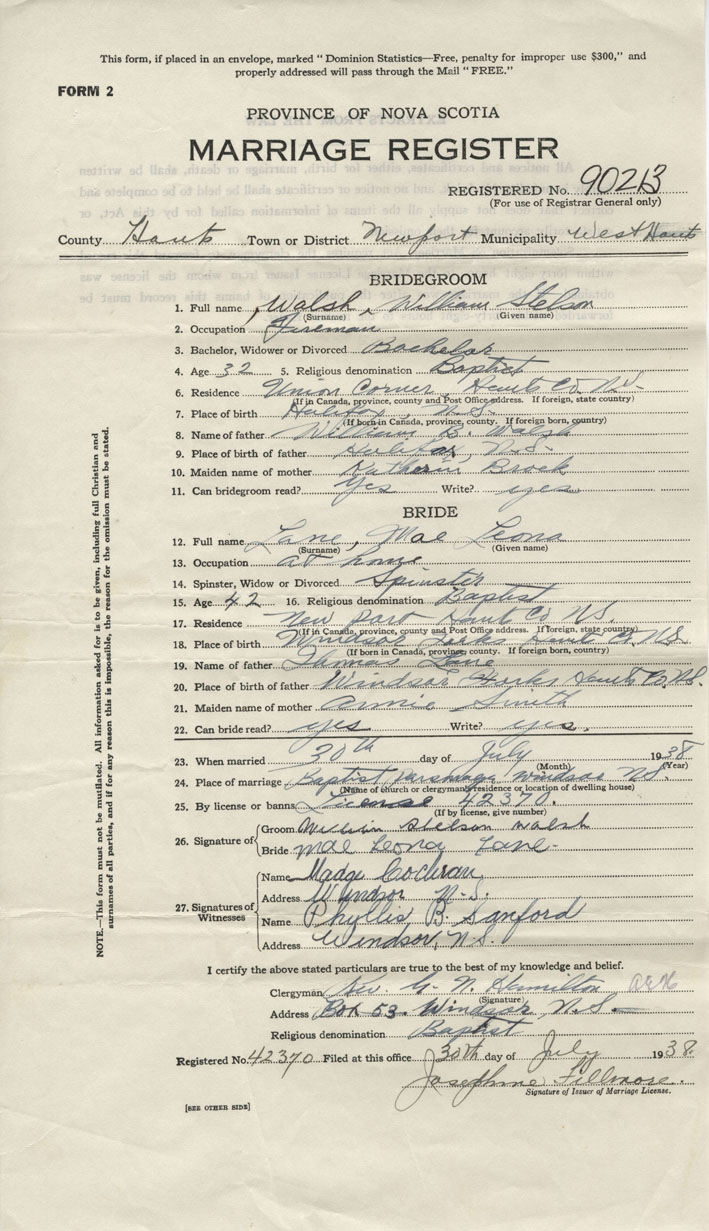 This form, if placed in an envelope, marked "Dominion Statistics—Free, penalty for improper use $300," and
properly addressed will pass through the Mail "FREE."
FORM 2
PROVINCE OF NOVA SCOTIA
MARRIAGE REGISTER
REGISTERED No. 90213
(For use of Registrar General only)
County Hants Town or District Newport Municipality West Hants
BRIDEGROOM
1. Full name Walsh, William Stelson
(Surname) (Given name)
2. Occupation Fireman
3. Bachelor, Widower or Divorced Bachelor
4. Age 32 5. Religious denomination Baptist
6. Residence Union Corner, Hants Co. N.S.
(If in Canada, province, county and Post Office address. If foreign, state country)
7. Place of birth Halifax, N.S.
(If born in Canada, province, county. If foreign, country)
8. Name of father William B. Walsh
9. Place of birth of father Halifax, N.S.
10. Maiden name of mother Katherin Brock
11. Can bridegroom read? Yes Write? yes
BRIDE
12. Full name Lane, Mae Leona
(Surname) (Given name)
13. Occupation at home
14. Spinster, Widow or Divorced Spinster
15. Age 42 16. Religious denomination Baptist
17. Residence New port Hants Co N.S.
(If in Canada, province, county and Post Office address. If foreign, state country)
18. Place of birth Windsor Forks Hants Co. N.S.
(If born in Canada, province, county. If foreign, country)
19. Name of father Thomas Lane
20. Place of birth of father Windsor Forks Hants Co. N.S.
21. Maiden name of mother Annie Smith
22. Can bride read? yes Write? yes.
23. When married 30th day of July 1938
(Month) (Year)
24. Place of marriage Baptist Parsonage Windsor N.S.
(Name of church or clergyman's residence or location of dwelling house)
25. By license or banns License 42370.
(If by license, give number)
26. Signature of
Groom William Stelson Walsh
Bride Mae Leona Lane
27. Signatures of Witnesses
Name Madge Cochran
Address Windsor N.S.
Name Phyllis B. Sanford
Address Windsor, N.S.
I certify the above stated particulars are true to the best of my knowledge and belief.
Clergyman Rev. G. N. Hamilton
(Signature)
Address Box 53. Windsor, N.S.
Religious denomination Baptist
Registered No. 42370 Filed at this office 30th day of July 1938.
Josephine Fillmore.
Signature of Issuer of Marriage License.
[SEE OTHER SIDE]
NOTE.—This form must not be mutilated. All information asked for is to be given, including full Christian and
surnames of all parties, and if for any reason this is impossible, the reason for the omission must be stated.